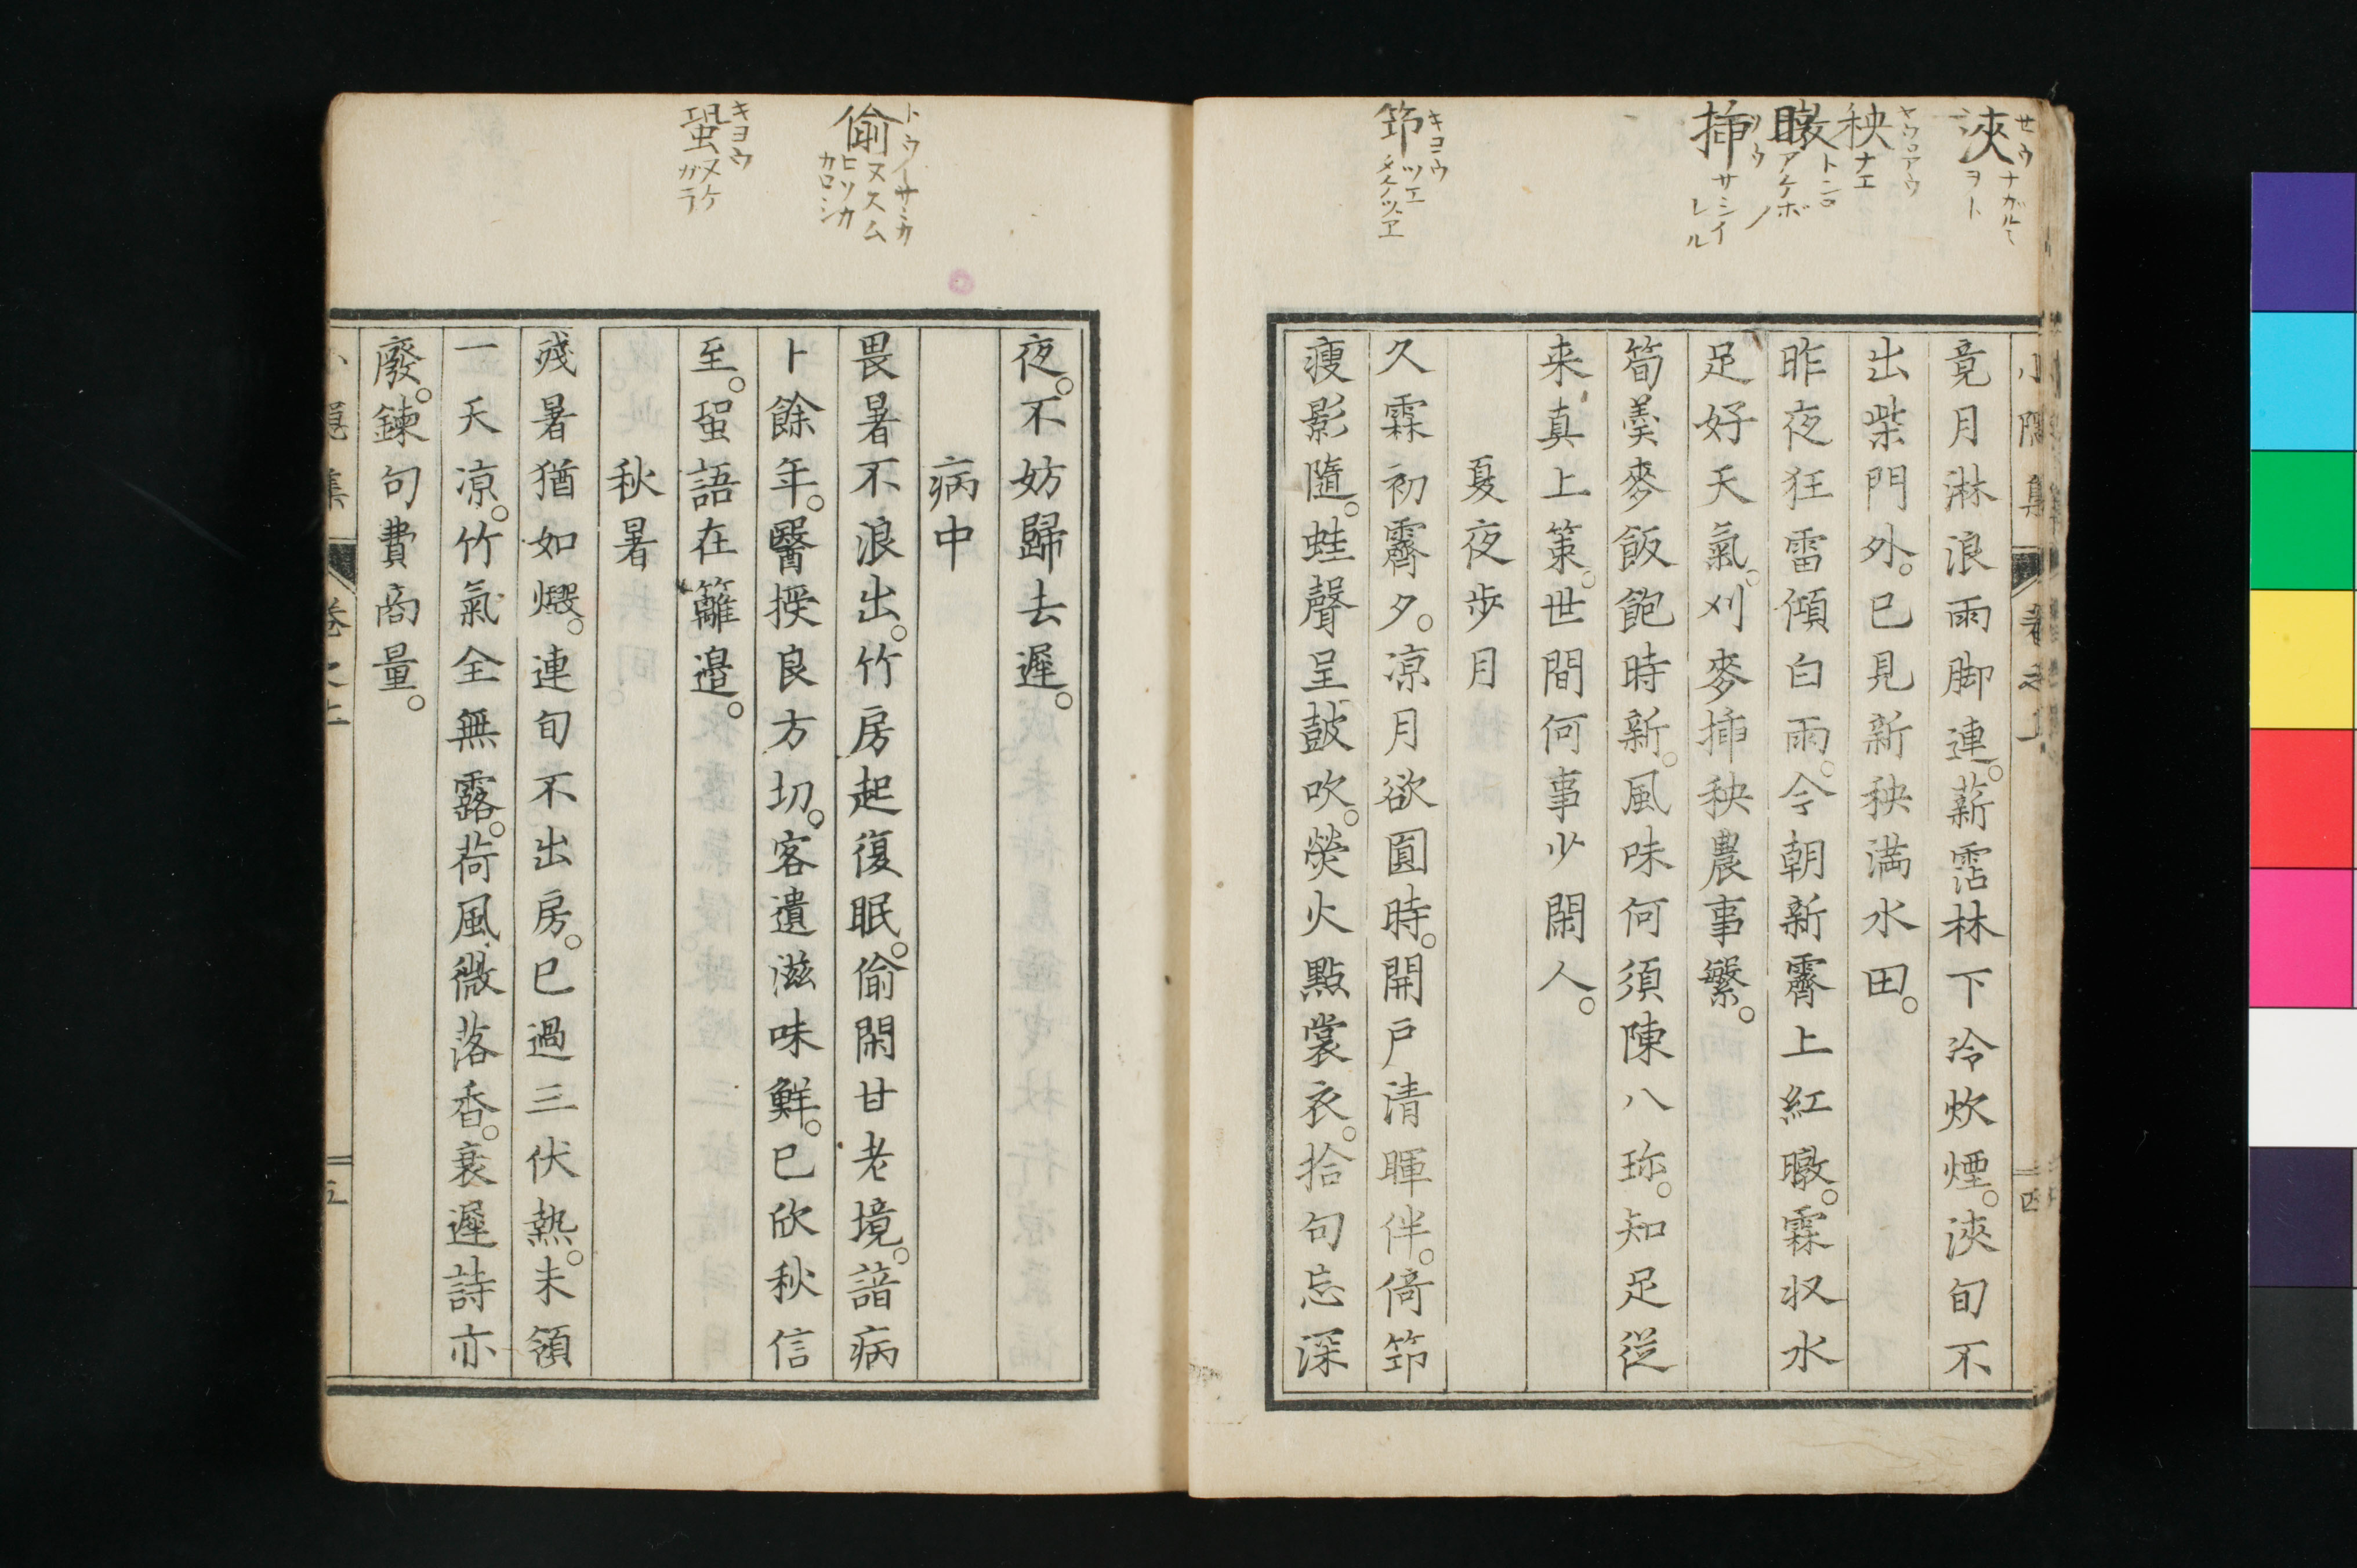 浹
せウ
ナガルミ
ヲト
秧
ヤウ
アウ
ナエ
暾
トン
アケボノ
挿
サウ
サシイ
レル
筇
キヨウ
ツエ
竟月淋浪雨脚連。薪霑林下冷炊煙。浹旬不
出柴門外。已見新秧満水田。
昨夜狂雷傾白雨。今朝新霽上紅暾。霖収水
足好天氣。刈麥挿秧農事繁。
筍羹麥飯飽時新。風味何須陳八珎。知足従
来真上策。世間何事少閑人。
夏夜歩月
久霖初霽夕。凉月欲圓時。開戸清暉伴。倚筇
瘦影隨。蛙聲呈鼓吹。熒火點裳衣。拾句忘深
偷
ヌスム
ヒソカ
カロシ
蛩
キヨウ
ヌケ
ガラ
夜。不妨歸去遲。
病中
畏暑不浪出。竹房起復眠。偷閑甘老境。諳病
卜餘年。醫授良方切。客遺滋味鮮。已欣秋信
至。蛩語在籬邉。
秋暑
残暑猶如燬。連旬不出房。已過三伏熱。未領
一天凉。竹氣全無露。荷風微落香。衰遲詩亦
廢。鍊句費商量。